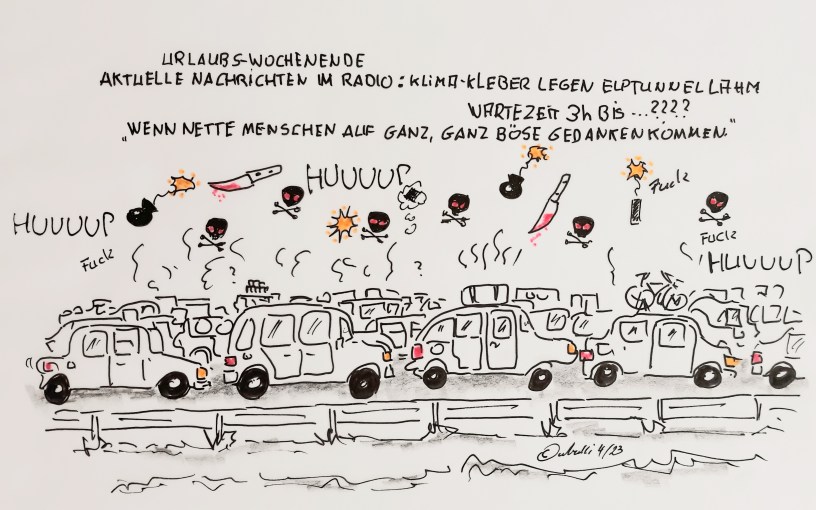 URLAUBS-WOCHENENDE
AKTUELLE NACHRICHTEN IM RADIO: KLIMA-KLEBER LEGEN ELPTUNNEL LAHM
WARTEZEIT 3h Bis ...????
„WENN NETTE MENSCHEN AUF GANZ, GANZ BÖSE GEDANKEN KOMMEN."
HUUUUP
Fuck
HUUUUP
Fuck
Fuck
HUUUUP
?
?
4/23